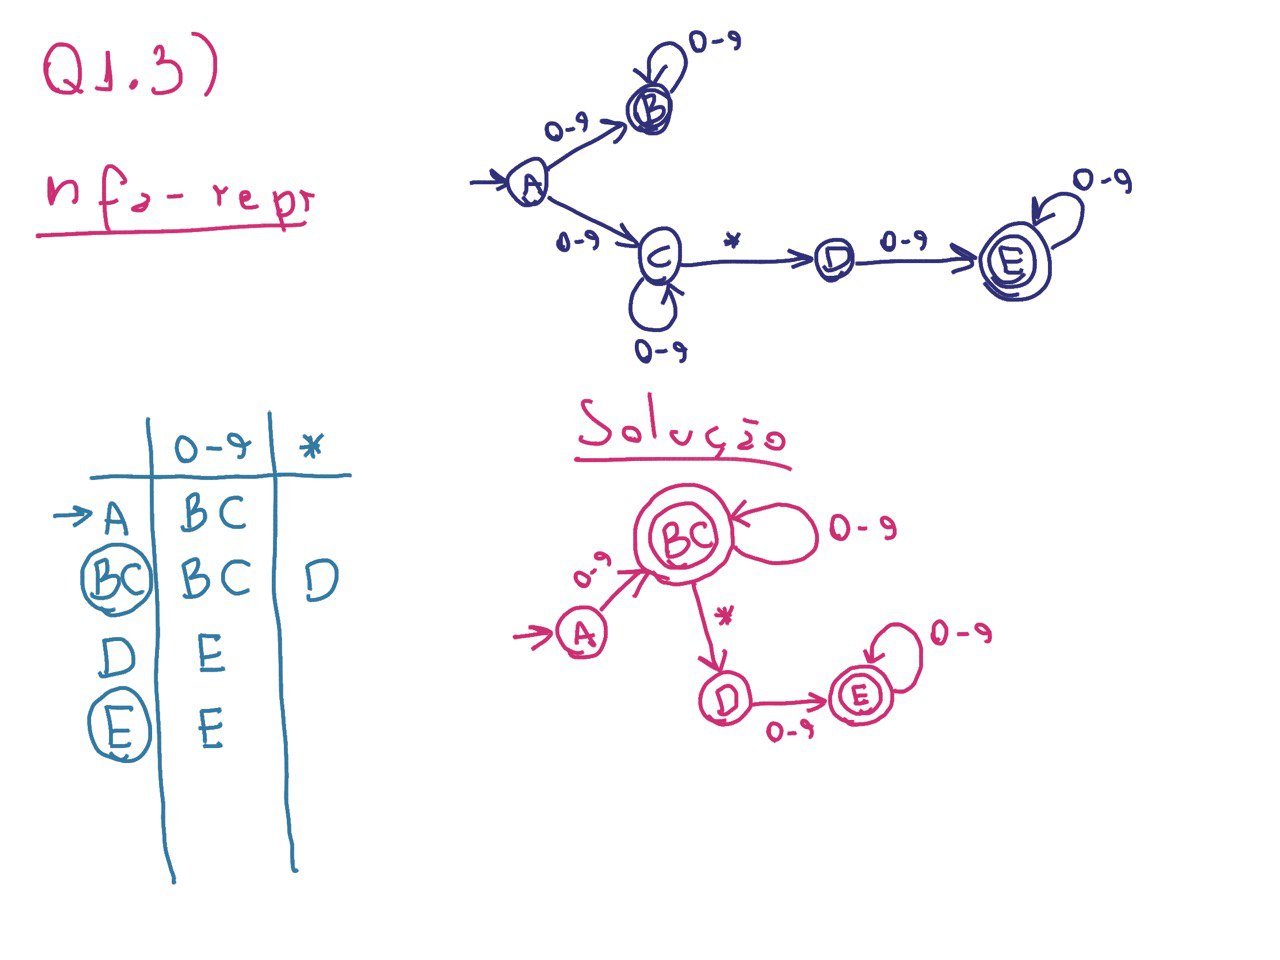 Q1.3)
nfa-repr
0-9
B
0-9
A
0-9
C
*
D
0-9
E
0-9
0-9
0-9 *
→ A BC
BC BC D
D E
E E
Solução
BC
0-9
0-9
A
*
D
0-9
E
0-9